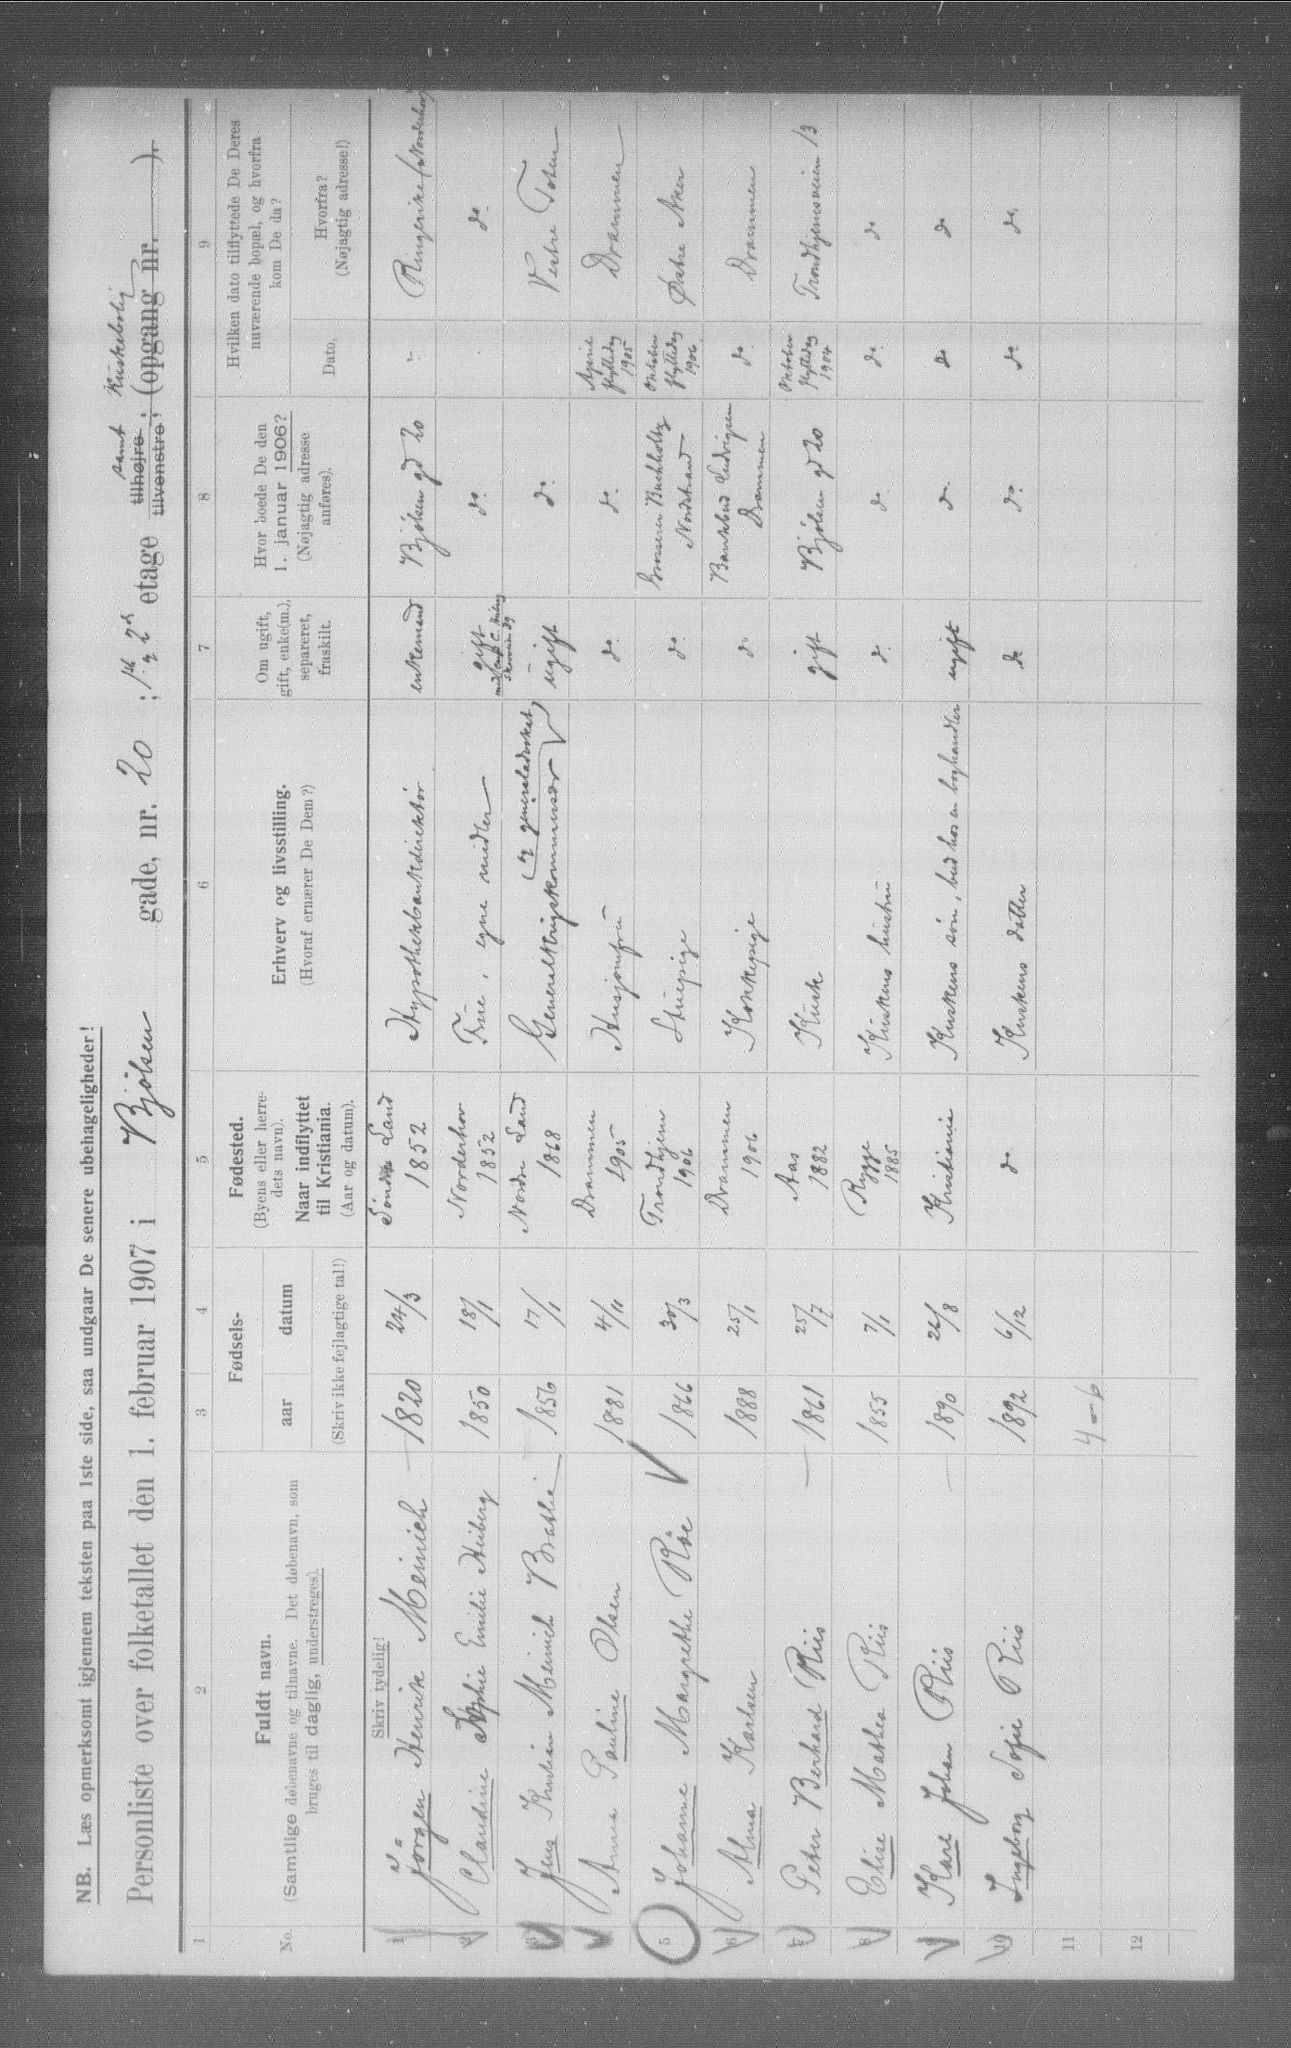 NB. Læs opmerksomt igjennem teksten paa 1ste side, saa undgaar De senere ubehageligheder!
Personliste over folketallet den 1. februar 1907 i Bjölsen gade, nr. 20 ; 1ste & 2d etage tilhøjre samt Kuskebolig
tilvenstre; (opgang nr. ).
1 2 3 4 5 6 7 8 9
No.
Fuldt navn.
(Samtlige døbenavne og tilnavne. Det døbenavn, som
bruges til daglig, understreges).
Fødsels-
aar datum
(Skriv ikke fejlagtige tal!)
Fødested.
(Byens eller herre-
dets navn).
Naar indflyttet
til Kristiania.
(Aar og datum).
Erhverv og livsstilling.
(Hvoraf ernærer De Dem?)
Om ugift,
gift, enke(m.),
separeret,
fraskilt.
Hvor boede De den
1. januar 1906?
(Nøjagtig adresse
anføres).
Hvilken dato tilflyttede De Deres
nuværende bopæl, og hvorfra
kom De da?
Dato.
Hvorfra?
(Nøjagtig adresse!)
Skriv tydelig!
1 Jörgen Henrik Meinich 1820 24/3 Söndre Land 1852 Hypothekbankdirektør enkemand Bjölsen gd 20 Ringerike (Norderhov)
2 Claudine Sophie Emilie Heiberg 1850 18/1 Norderhov 1852 Frue, egne midler gift do. do.
3 Jens Kristian Meinich Bratlie 1856 17/1 Nordre Land 1868 Generalkrigskommissær (& generaladvokat) ugift do. Vestre Toten
4 Anna Pauline Olsen 1881 4/11 Drammen 1905 Husjomfru do. do. April flyttedag 1905 Drammen
5 Johanne Margrethe Röe 1866 30/3 Trondhjem 1906 Stuepige do. Grosserer Buchholtz Nordstrand Oktober flyttedag 1906 Østre Aker
6 Alma Karlsen 1888 25/1 Drammen 1906 Kokkepige do Bankbud Ludvigsen Drammen do. Drammen
7 Peter Berhard Riis 1861 25/7 Aas 1882 Kusk gift Bjölsen gd 20 Oktober flyttedag 1904 Trondhjemsveien 13
8 Elise Mathea Riis 1855 7/1 Rygge 1885 Kuskens hustru do. do. do. do
9 Karl Johan Riis 1890 26/8 Kristiania Kuskens sön, bud hos en boghandler ugift do. do do
10 Ingeborg Sofie Riis 1892 6/12 do Kuskens datter do do. do do.
11 4 - 6
12